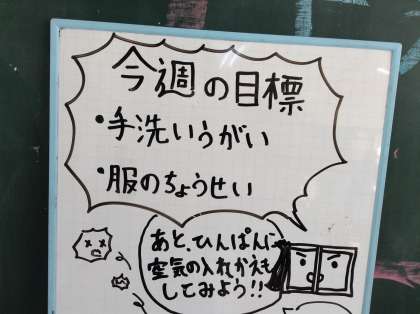 今週の目標
・手洗いうがい
・服のちょうせい
あと、ひんぱんに
空気の入れかえも
してみよう!!